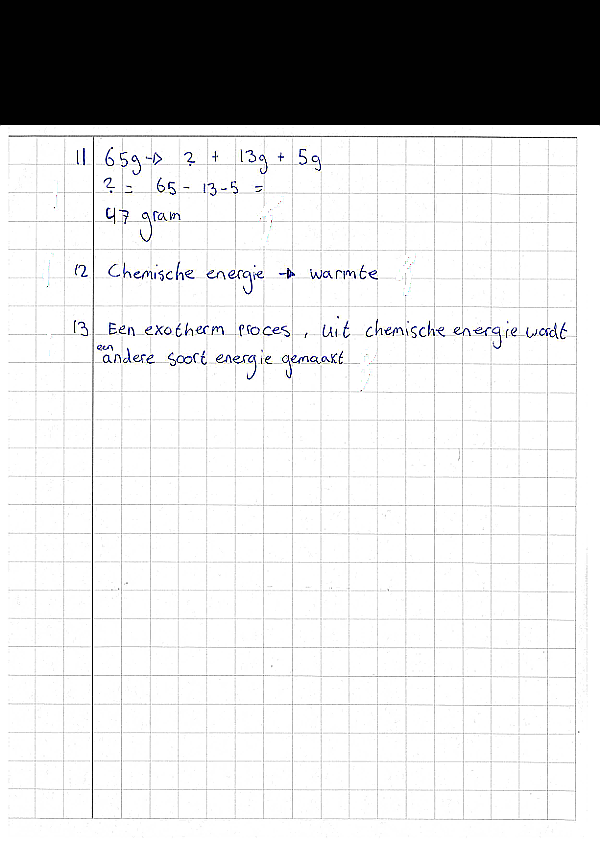 11 65g → ? + 13g + 5g
? = 65 - 13 - 5 =
47 gram
12 Chemische energie → warmte
13 Een exotherm proces, uit chemische energie wordt
een andere soort energie gemaakt